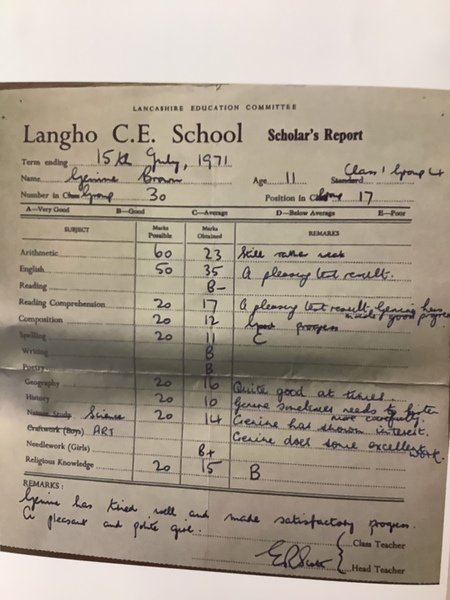 LANCASHIRE EDUCATION COMMITTEE
Langho C.E. School Scholar's Report
Term ending 15th July, 1971
Name Genine Brown Age 11 Standard Class 1 Group 4
Number in Class Group 30 Position in Class Group 17
A—Very Good B—Good C—Average D—Below Average E—Poor
SUBJECT Marks Possible Marks Obtained REMARKS
Arithmetic 60 23 Still rather weak
English 50 35 A pleasing test result.
Reading B-
Reading Comprehension 20 17 A pleasing test result. Genine has made good progress
Composition 20 12 Good progress
Spelling 20 11 C
Writing B
Poetry B
Geography 20 16 Quite good at times.
History 20 10 Genine sometimes needs to listen more carefully.
Nature Study Science 20 14 Genine has shown interest.
Craftwork (Boys) ART Genine does some excellent work.
Needlework (Girls) B+
Religious Knowledge 20 15 B
REMARKS:
Genine has tried well and made satisfactory progress.
A pleasant and polite girl.
Class Teacher
Head Teacher